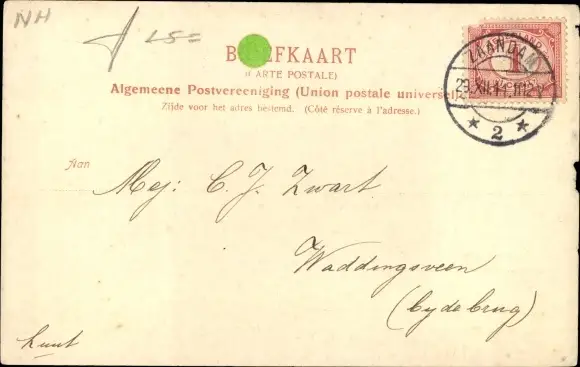 NH
25=
B EFKAART
(CARTE POSTALE)
Algemeene Postvereeniging (Union postale universel
Zijde voor het adres bestemd. (Côté réserve à l'adresse.)
ZAANDAM
2
Aan
Mej: C. J. Zwart
Waddingsveen
(by de brug)